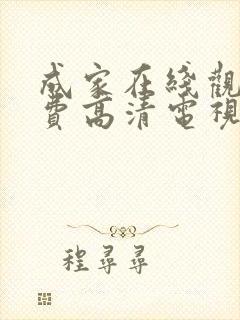 成家在綫觀
費高清電視
程尋尋